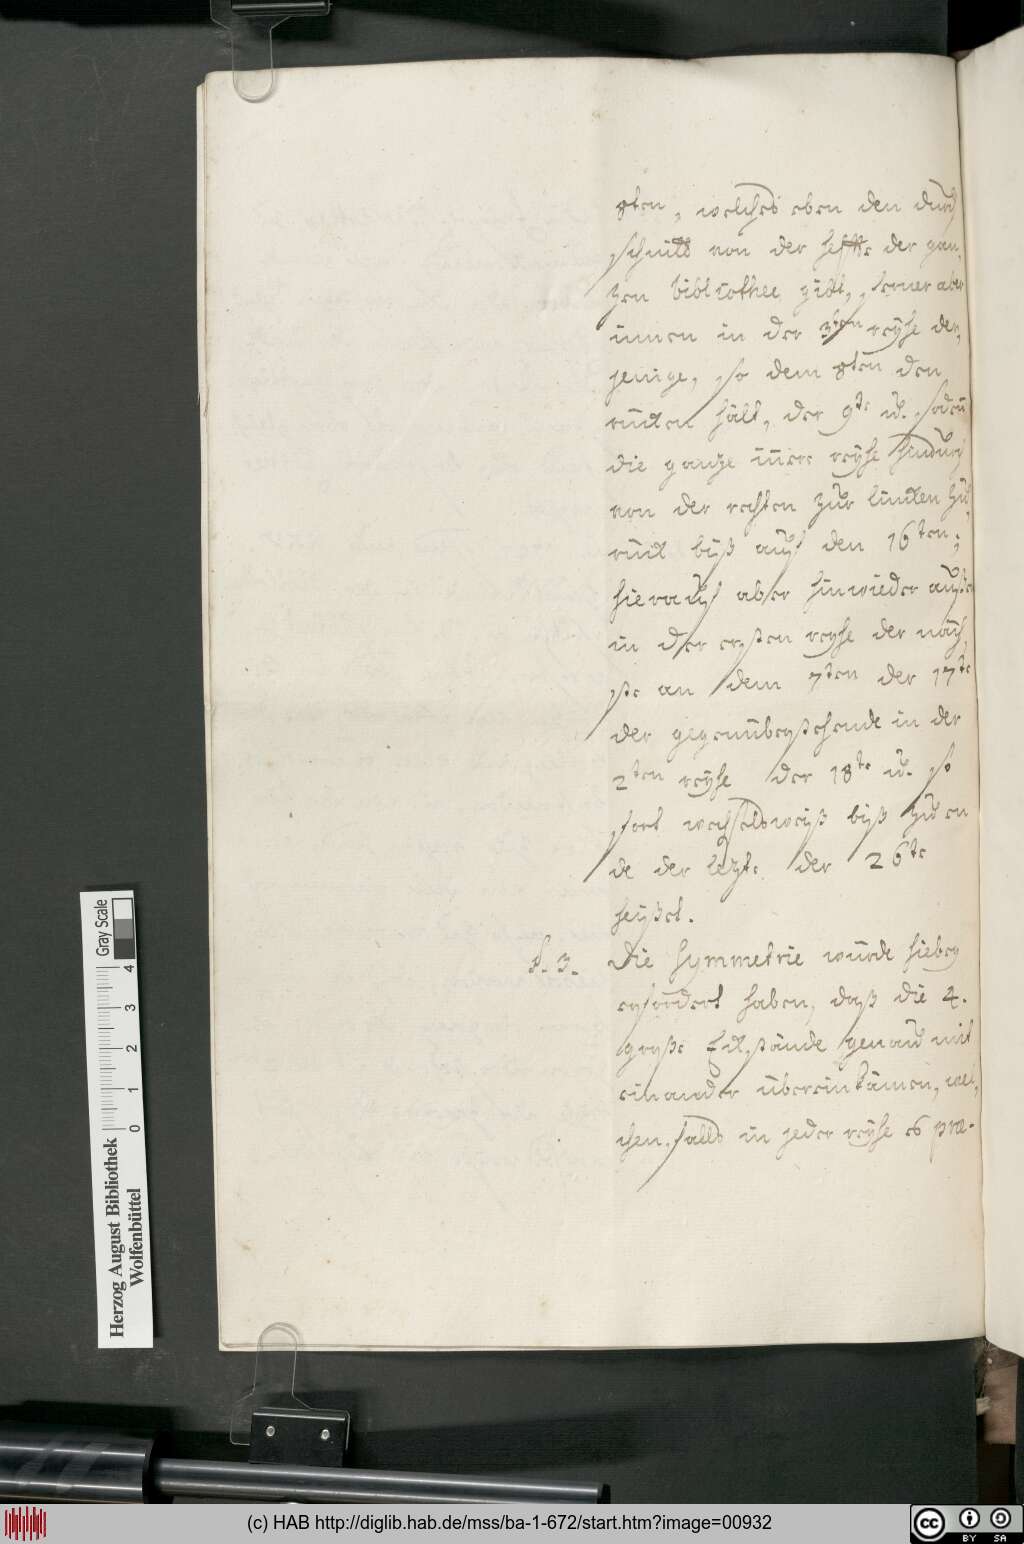 8ten, welches eben den durch
schnitt von der helffte der gan,
zen bibliothec gibt, ferner aber
innen in der 3ten reyhe der,
jenige, so dem 8ten den
rücken hält, der 9te u. sodann
die ganze innere reyhe hindurch
von der rechten zur lincken zu,
rück biß auf den 16ten;
hierauf aber hinwieder aussen
in der ersten reyhe der näch,
ste an dem 7ten der 17te
der gegenüberstehende in der
2ten reyhe der 18te u. so
fort wechselsweiß biß zu en
de der lezte der 26te
heysset.
§. 3. Die Symmetrie würde hiebey
erfordert haben, daß die 4.
große Eckstände genau mit
einander übereinkämen, wel,
chenfalls in jeder reyhe es præ-
Gray Scale
0 1 2 3 4
Herzog August Bibliothek
Wolfenbüttel
(c) HAB http://diglib.hab.de/mss/ba-1-672/start.htm?image=00932
cc BY SA